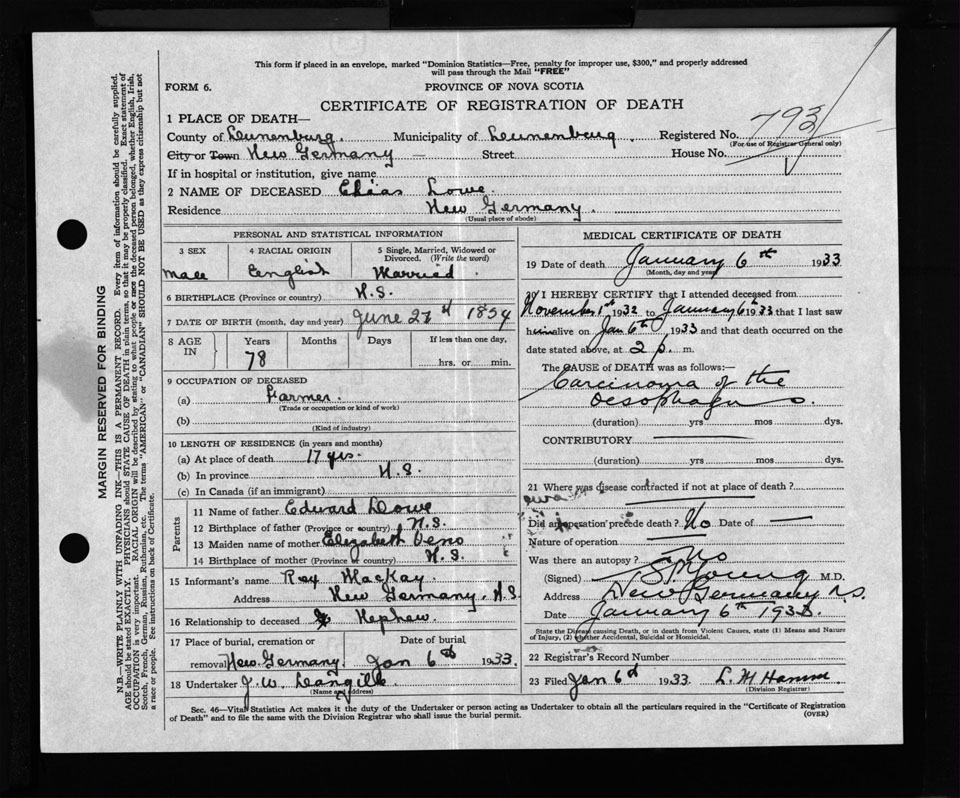 This form if placed in an envelope, marked "Dominion Statistics—Free, penalty for improper use, $300," and properly addressed
will pass through the Mail "FREE"
FORM 6.
PROVINCE OF NOVA SCOTIA
CERTIFICATE OF REGISTRATION OF DEATH
1 PLACE OF DEATH—
County of Lunenburg. Municipality of Lunenburg. Registered No. 793
(For use of Registrar General only)
City or Town New Germany — Street House No.
If in hospital or institution, give name
2 NAME OF DECEASED Elias Lowe.
Residence New Germany.
(Usual place of abode)
PERSONAL AND STATISTICAL INFORMATION
3 SEX 4 RACIAL ORIGIN 5 Single, Married, Widowed or
Divorced. (Write the word)
Male English Married.
6 BIRTHPLACE (Province or country) N.S.
7 DATE OF BIRTH (month, day and year) June 27 1854
8 AGE IN Years Months Days If less than one day,
78 hrs. or min.
9 OCCUPATION OF DECEASED
(a) Farmer.
(Trade or occupation or kind of work)
(b)
(Kind of industry)
10 LENGTH OF RESIDENCE (in years and months)
(a) At place of death 17 yrs.
(b) In province N.S.
(c) In Canada (if an immigrant)
Parents
11 Name of father Edward Lowe
12 Birthplace of father (Province or country) N.S.
13 Maiden name of mother Elizabeth
14 Birthplace of mother (Province or country) N.S.
15 Informant's name Rex MacKay.
Address New Germany. N.S.
16 Relationship to deceased Nephew.
17 Place of burial, cremation or Date of burial
removal New Germany. Jan 6th 1933.
18 Undertaker J.W. Langille
(Name and address)
MEDICAL CERTIFICATE OF DEATH
19 Date of death January 6th 1933
(Month, day and year)
20 I HEREBY CERTIFY that I attended deceased from
November 1st 1932 to January 6 1933 that I last saw
him alive on Jan 6th 1933 and that death occurred on the
date stated above, at 2 p. m.
The CAUSE of DEATH was as follows:—
Carcinoma of the
Oesophagus.
(duration) yrs mos dys.
CONTRIBUTORY
(duration) yrs mos dys.
21 Where was disease contracted if not at place of death?
Did an operation precede death? No Date of —
Nature of operation —
Was there an autopsy? No
(Signed) Young M.D.
Address New Germany N.S.
Date January 6th 1933.
State the Disease causing Death, or in death from Violent Causes, state (1) Means and Nature
of Injury, (2) whether Accidental, Suicidal or Homicidal.
22 Registrar's Record Number
23 Filed Jan 6th 1933. L. M
(Division Registrar)
Sec. 46—Vital Statistics Act makes it the duty of the Undertaker or person acting as Undertaker to obtain all the particulars required in the "Certificate of Registration
of Death" and to file the same with the Division Registrar who shall issue the burial permit.
(OVER)
MARGIN RESERVED FOR BINDING
N.B.—WRITE PLAINLY WITH UNFADING INK—THIS IS A PERMANENT RECORD. Every item of information should be carefully supplied.
AGE should be stated EXACTLY. PHYSICIANS should STATE CAUSE OF DEATH in plain terms, so that it may be properly classified. Exact statement of
OCCUPATION is very important. RACIAL ORIGIN will be described by stating to what people or race the deceased person belonged, whether English, Irish,
Scotch, French, German, Russian, Ruthenian, etc. The terms "AMERICAN" or "CANADIAN" SHOULD NOT BE USED as they express citizenship but not
a race or people. See instructions on back of Certificate.